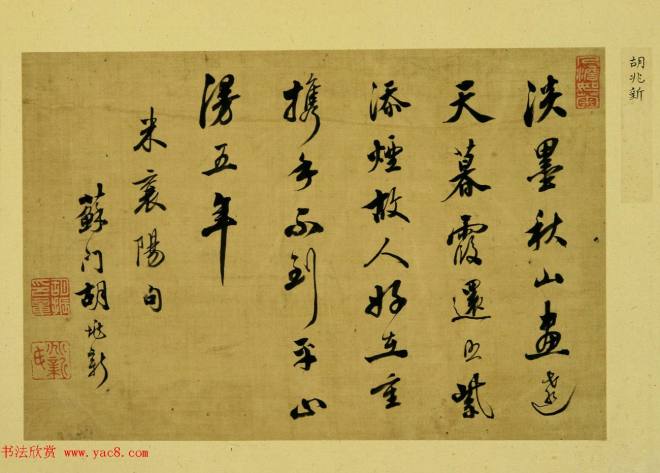 胡兆新
淡墨秋山畫遠
天暮霞還照紫
添煙故人好在重
攜手不到平山
漫五年
米襄陽句
蘇门胡兆新
书法欣赏 www.yac8.com